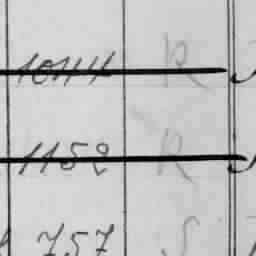 1044 R
1152 R
757 S